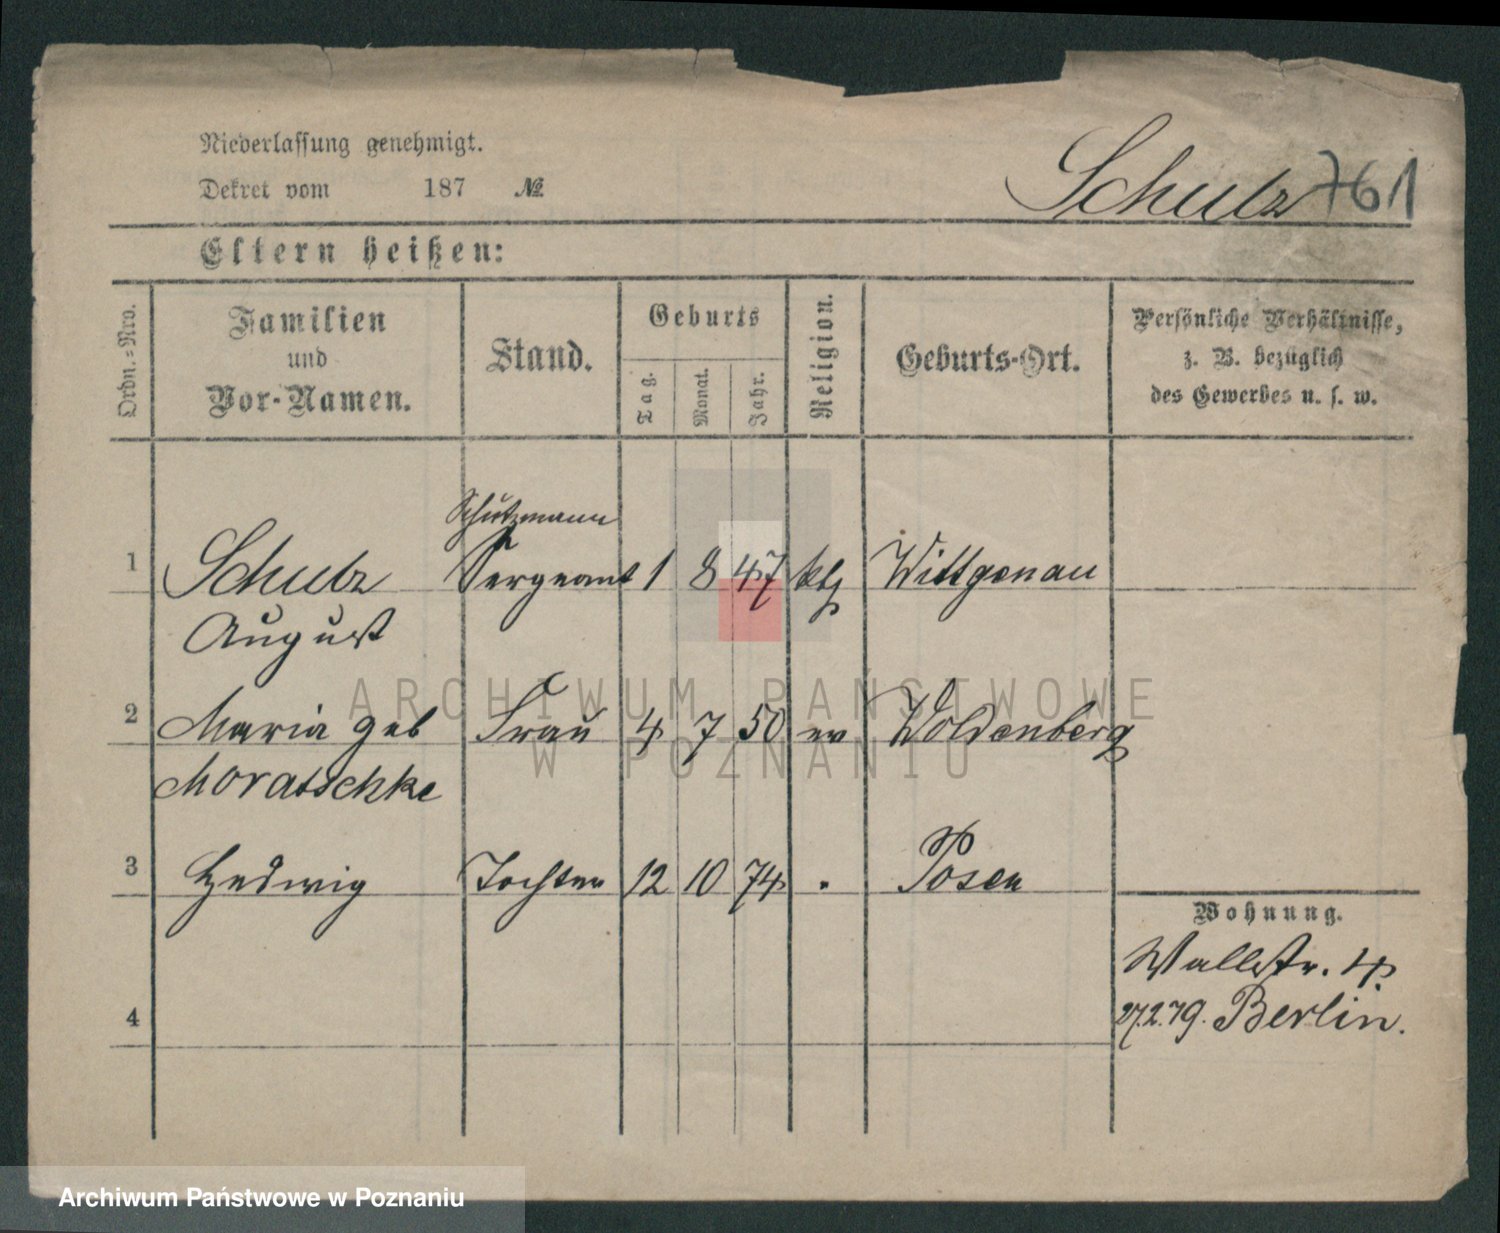 Niederlassung genehmigt.
Dekret vom 187 №
Schulz 761
Eltern heißen:
Ordn.=Nro.
Familien und Vor-Namen.
Stand.
Geburts
Tag.
Monat.
Jahr.
Religion.
Geburts-Ort.
Persönliche Verhältnisse,
z. B. bezüglich
des Gewerbes u. s. w.
Schutzmann
1 Schulz Sergeant 1 8 47 ktl Wittgenau
August
2 Maria geb Frau 4 7 50 ev Woldenberg
Moratschke
3 Hedwig Tochter 12 10 74 " Posen
Wohnung.
Wallstr. 4.
27.2.79. Berlin.
4
ARCHIWUM PAŃSTWOWE
W POZNANIU
Archiwum Państwowe w Poznaniu